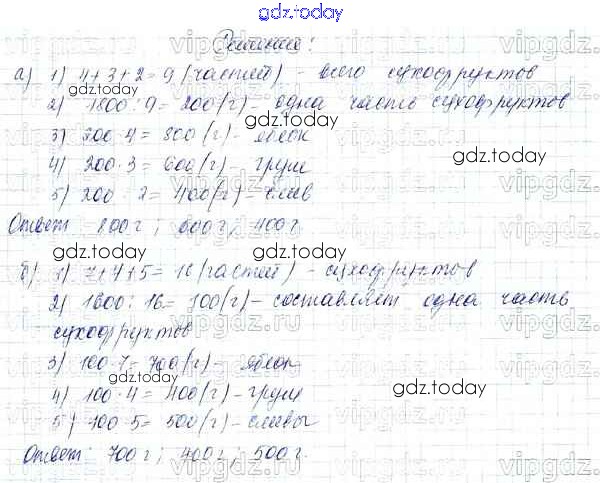 gdz.today
Решение:
а) 1) 4+3+2=9 (частей) - всего сухофруктов
2) 1800:9=200(г) - одна часть сухофруктов
3) 200·4=800(г) - яблок
4) 200·3=600(г) - груш
5) 200·2=400(г) - слив
Ответ: 800г; 600г; 400г
б) 1) 7+4+5=16 (частей) - сухофруктов
2) 1600:16=100(г) - составляет одна часть
сухофруктов
3) 100·7=700(г) - яблок
4) 100·4=400(г) - груш
5) 100·5=500(г) - сливы
Ответ: 700г; 400г; 500г.
gdz.today
gdz.today
gdz.today
gdz.today
gdz.today
gdz.today
gdz.today